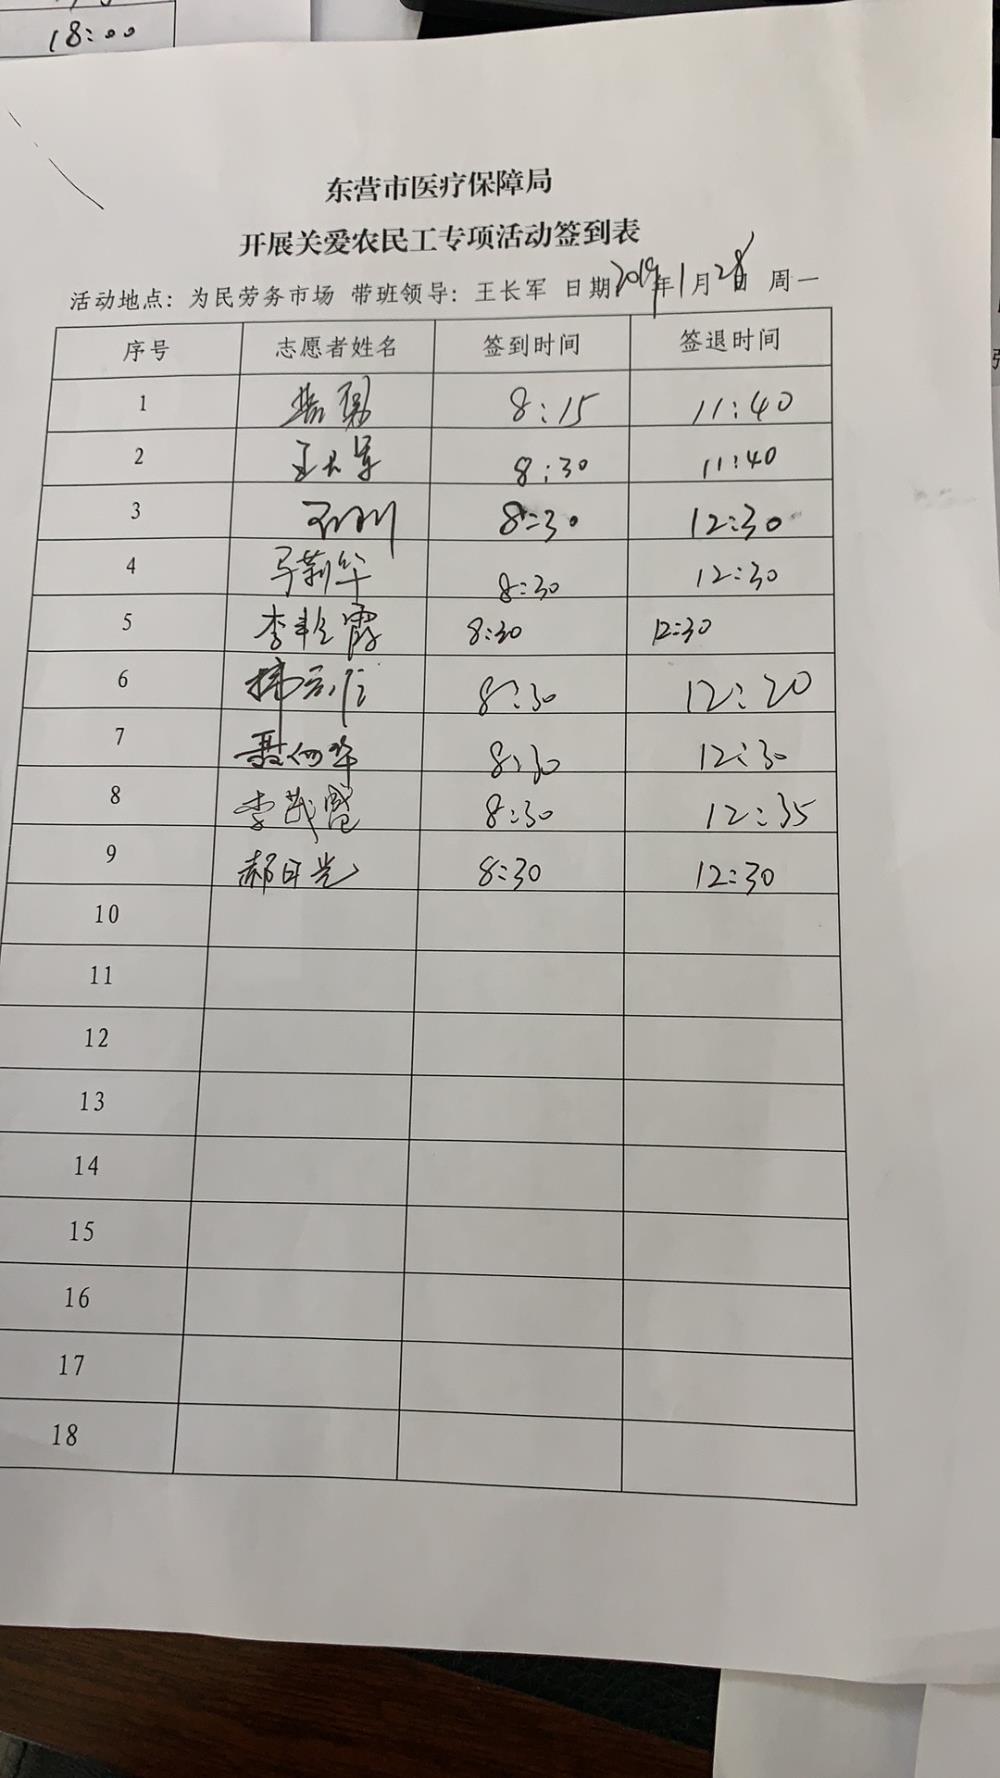 18:00
东营市医疗保障局
开展关爱农民工专项活动签到表
活动地点：为民劳务市场 带班领导：王长军 日期2019年1月28日 周一
序号 志愿者姓名 签到时间 签退时间
1 8:15 11:40
2 王长军 8:30 11:40
3 8:30 12:30
4 马莉华 8:30 12:30
5 李 霞 8:30 12:30
6 8:30 12:20
7 8:30 12:30
8 李茂盛 8:30 12:35
9 郝日光 8:30 12:30
10
11
12
13
14
15
16
17
18